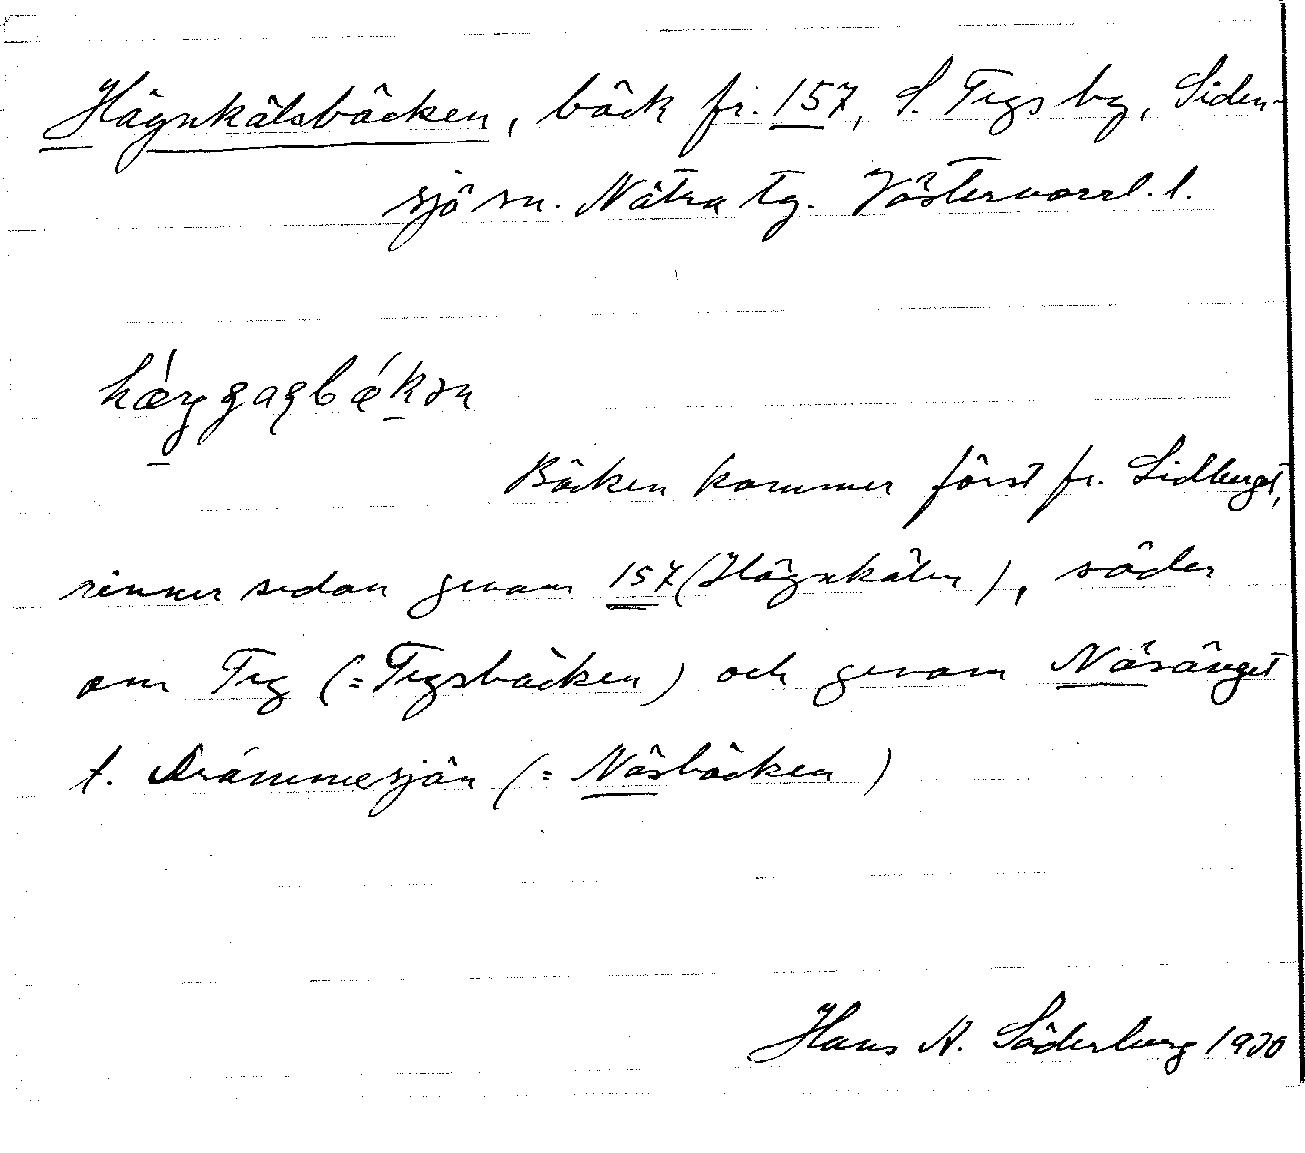 Högnkälsbäcken, bäck fr. 157, S. Tegs by, Siden-
sjö sn. Nätra tg. Västernorrl. l.
Bäcken kommer först fr. Lidberget,
rinner sedan genom 157 (Högnkälen), söder
om Teg (= Tegsbäcken) och genom Näsänget
t. Drömmesjön (= Näsbäcken)
Hans N. Söderberg 1930